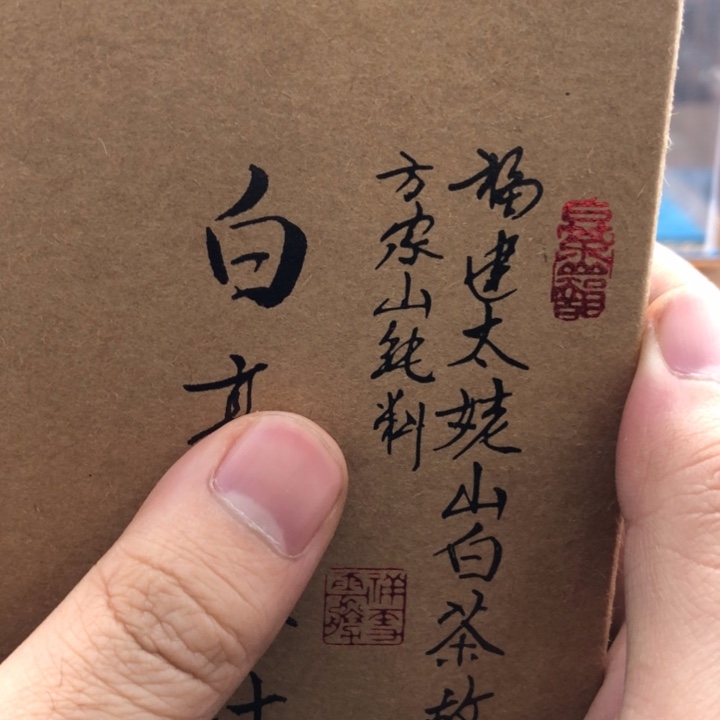 福建太姥山白茶故
方家山純料
白